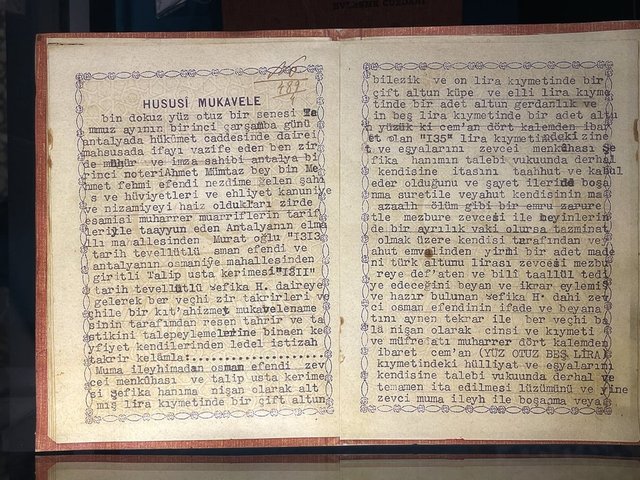 EVLENME CÜZDANI
487
HUSUSİ MUKAVELE
bin dokuz yüz otuz bir senesi Te
mmuz ayının birinci çarşamba günü
antalyada hükümet caddesinde dairei
mahsusada ifayı vazife eden ben zir
de mühür ve imza sahibi antalya bi
rinci noteriAhmet Mümtaz bey bin Me
hmet fehmi efendi nezdime gelen şahi
s ve hüviyetleri ve ehliyet kanuniye
ve nizamiyeyi haiz oldukları zirde
esamisi muharrer muarriflerin tarif
leriyle taayyun eden Antalyanın elma
lı ma allesinden Murat oğlu "I3I3
tarih tevellütlü osman efendi ve
antalyanın osmaniye mahallesinden
giritli Talip usta kerimesi"I3II"
tarih tevellütlü Şefika H. daireye
gelerek ber veçhi zir takrirleri ve
chile bir kıt'ahizmet mukavelename
sinin tarafımdan resen tahrir ve ta
stikini talepeylemelerine binaen ke
yfiyet kendilerinden ledel istizah
takrir kelâmla:
Muma ileyhimadan osman efendi zev
cei menkûhası ve talip usta kerime
si Şefika hanıma nişan olarak alt
mış lira kıymetinde bir çift altun
bilezik ve on lira kıymetinde bir
çift altun küpe ve elli lira kıyme
tinde bir adet altun gerdanlık ve
in beş lira kıymetinde bir adet altu
n yüzük ki cem'an dört kalemden ibar
et olan "I35" lira kıymetindeki zine
t ve eşyalarını zevcei menkûhası Şe
fika hanımın talebi vukuunda derhal
kendisine itasını taahhut ve kabul
eder olduğunu ve şayet ileride boşa
nma suretile veyahut kendisinin ma
azaalh ölüm gibi bir emru zarure
tle mezbure zevcesi ile beyinlerin
de bir ayrılık vaki olursa tazminat
olmak üzere kendisi tarafından ve
yahut emvalinden yirmi bir adet made
ni türk altunu lirası zevcesi mezbu
reye def'aten ve bilî taallül tedi
ye edeceğini beyan ve ikrar eylemiş
ve hazır bulunan Şefika H. dahi zev
ci osman efendinin ifade ve beyana
tını aynen tekrar ile ber veçhi ba
lâ nişan olarak cinsi ve kıymeti
ve müfredatı muharrer dört kalemden
ibaret cem'an (YÜZ OTUZ BEŞ LİRA)
kıymetindeki hülliyat ve eşyalarını
kendisine talebi vukuunda derhal ve
temamen ita edilmesi lüzümünü ve yine
zevci muma ileyh ile boşanma veya